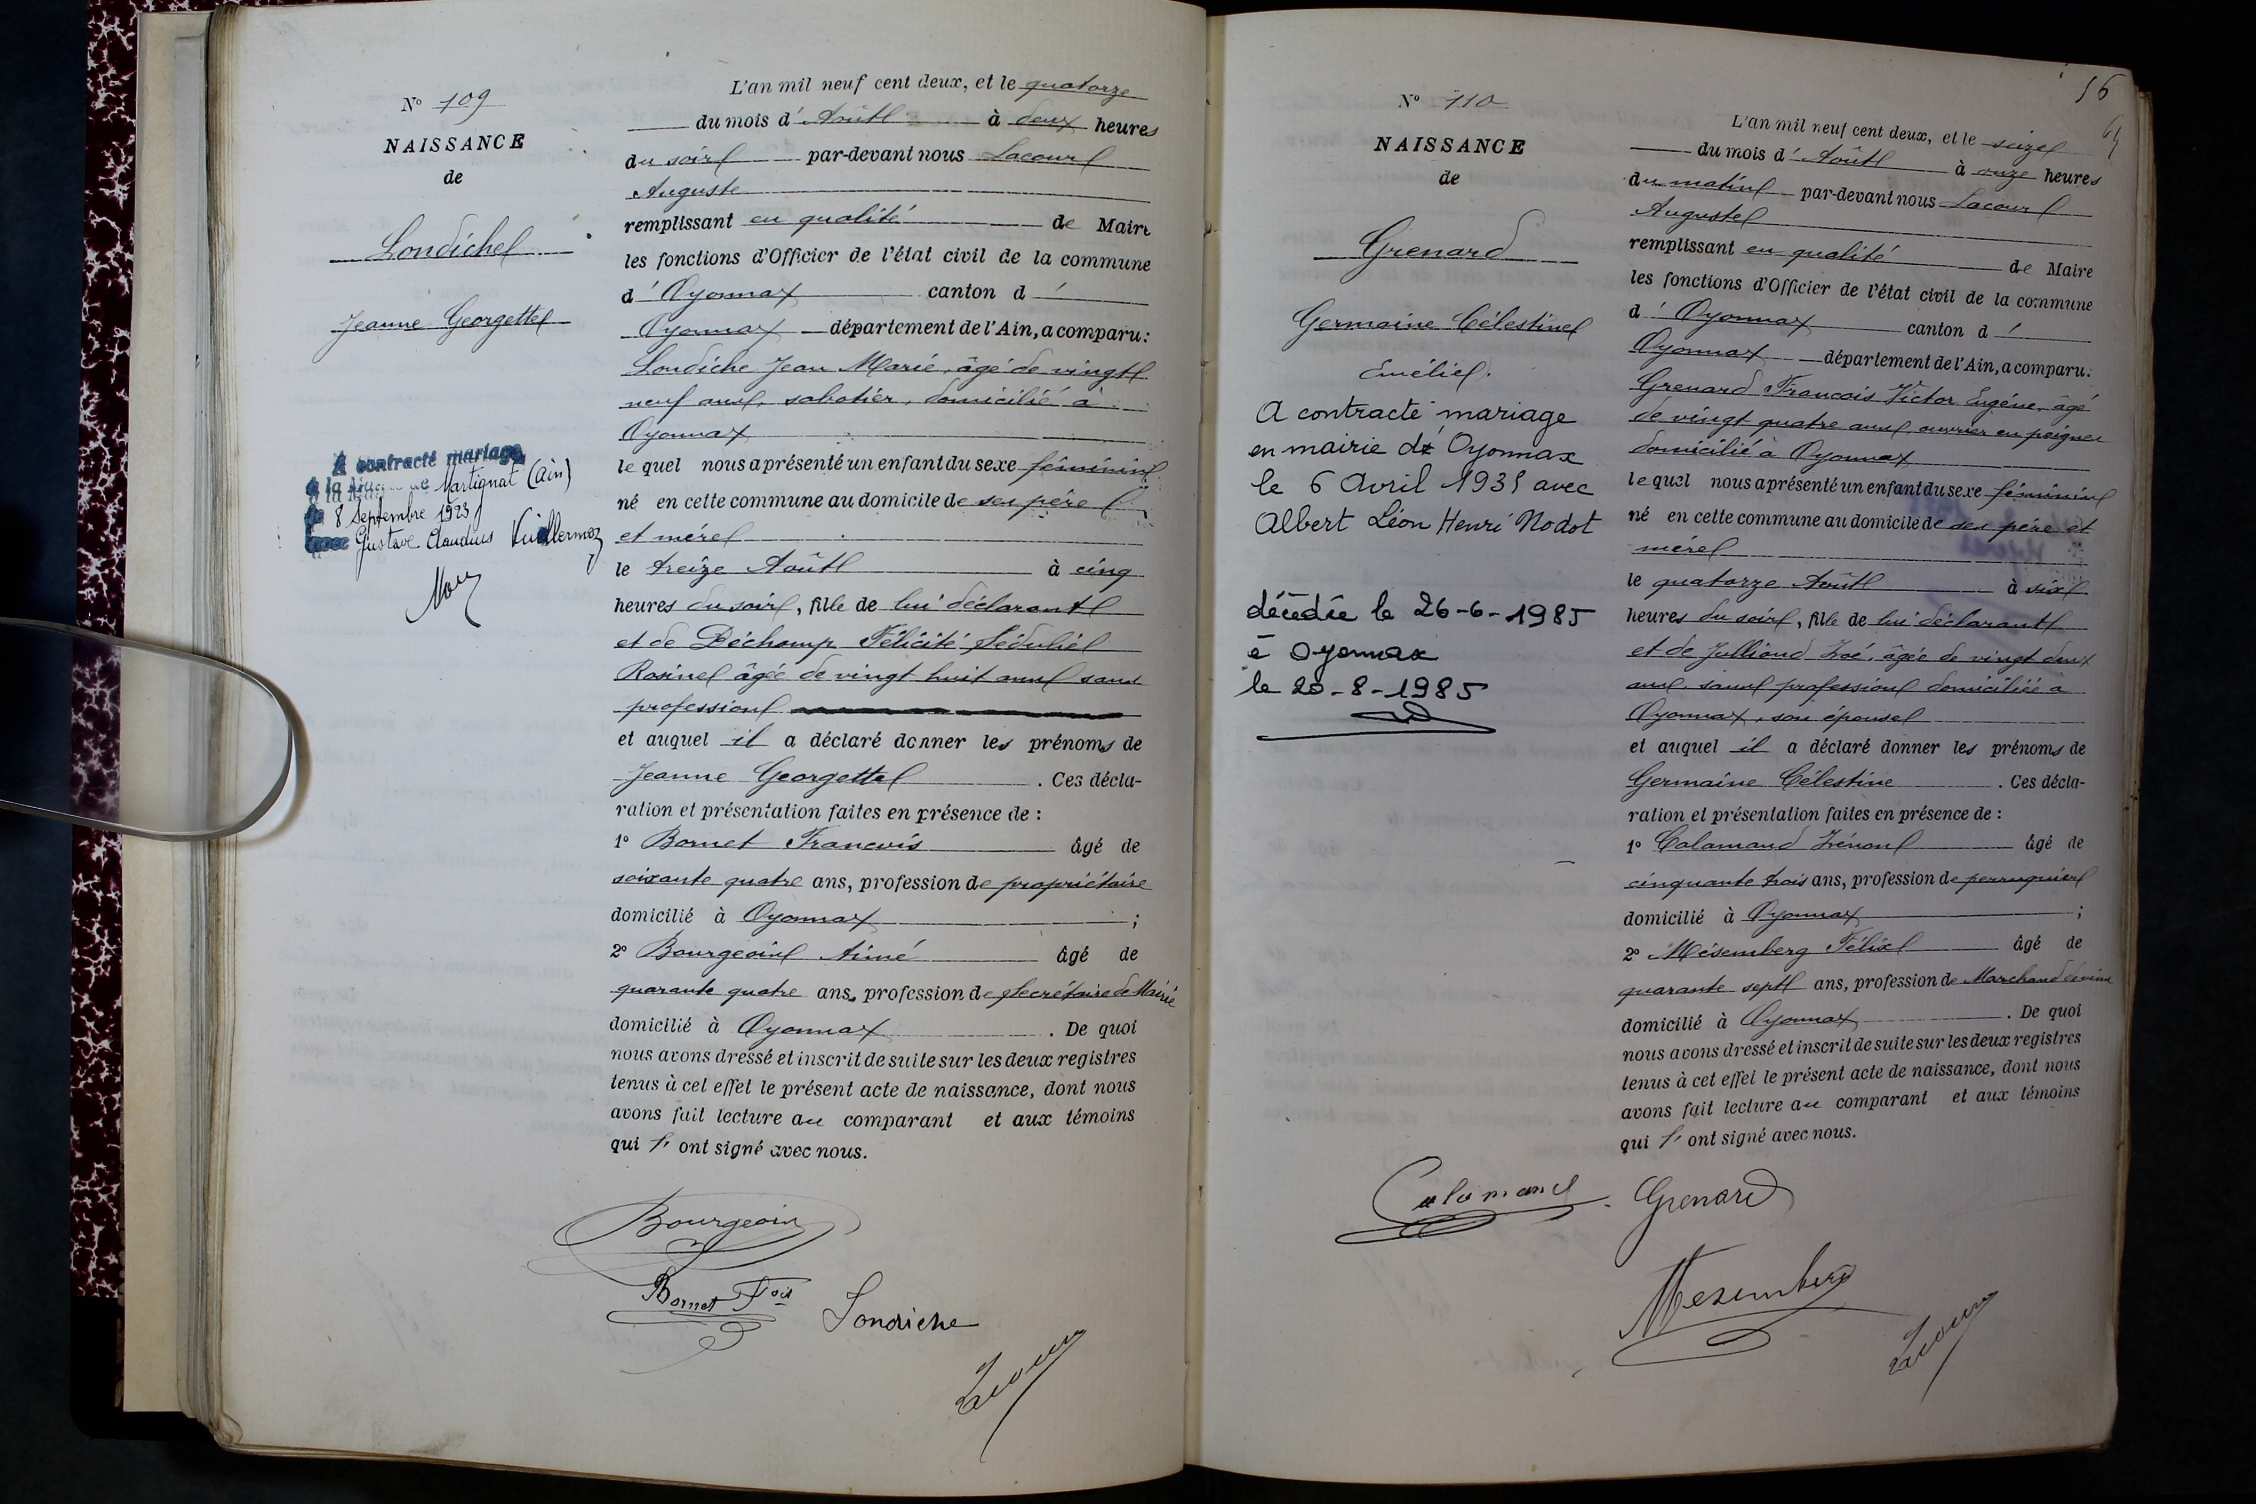 N° 109
NAISSANCE
de
Londiche
Jeanne Georgette
A contracté mariage
à la Mairie de Martignat (Ain)
le 8 Septembre 1923
avec Gustave Claudius Vuillermoz
L'an mil neuf cent deux, et le quatorze
du mois d'Août à deux heures
du soir par-devant nous Lacour
Auguste
remplissant en qualité de Maire
les fonctions d'Officier de l'état civil de la commune
d'Oyonnax canton d'
Oyonnax département de l'Ain, a comparu:
Londiche Jean Marie, âgé de vingt
neuf ans, sabotier, domicilié à
Oyonnax
le quel nous a présenté un enfant du sexe féminin
né en cette commune au domicile de ses père
et mère
le treize Août à cinq
heures du soir, fille de lui déclarant
et de Déchamp Félicité Sédulie
Rosine âgée de vingt huit ans sans
profession
et auquel il a déclaré donner les prénoms de
Jeanne Georgette . Ces décla-
ration et présentation faites en présence de :
1° Bornet Francois âgé de
soixante quatre ans, profession de propriétaire
domicilié à Oyonnax ;
2° Bourgeois Aimé âgé de
quarante quatre ans, profession de Secrétaire de Mairie
domicilié à Oyonnax . De quoi
nous avons dressé et inscrit de suite sur les deux registres
tenus à cet effet le présent acte de naissance, dont nous
avons fait lecture au comparant et aux témoins
qui l'ont signé avec nous.
Bourgeois
Bornet Fois
Londiche
Lacour
56
N° 110
NAISSANCE
de
Grenard
Germaine Célestine
Emélie.
A contracté mariage
en mairie d'Oyonnax
le 6 Avril 1935 avec
Albert Léon Henri Nodot
décédée le 26-6-1985
à Oyonnax
le 20-8-1985
L'an mil neuf cent deux, et le seize
du mois d'Août à onze heures
du matin par-devant nous Lacour
Auguste
remplissant en qualité de Maire
les fonctions d'Officier de l'état civil de la commune
d'Oyonnax canton d'
Oyonnax département de l'Ain, a comparu:
Grenard Francois Victor Eugène, âgé
de vingt quatre ans, ouvrier en peignes
domicilié à Oyonnax
le quel nous a présenté un enfant du sexe féminin
né en cette commune au domicile de ses père et
mère
le quatorze Août à six
heures du soir, fille de lui déclarant
et de Julliand Zoé, âgée de vingt deux
ans, sans profession domiciliée à
Oyonnax, son épouse
et auquel il a déclaré donner les prénoms de
Germaine Célestine . Ces décla-
ration et présentation faites en présence de :
1° Calamand Zénon âgé de
cinquante trois ans, profession de perruquier
domicilié à Oyonnax ;
2° Mésemberg Félix âgé de
quarante sept ans, profession de Marchand de vins
domicilié à Oyonnax . De quoi
nous avons dressé et inscrit de suite sur les deux registres
tenus à cet effet le présent acte de naissance, dont nous
avons fait lecture au comparant et aux témoins
qui l'ont signé avec nous.
Calamand
Grenard
Mesemberg
Lacour